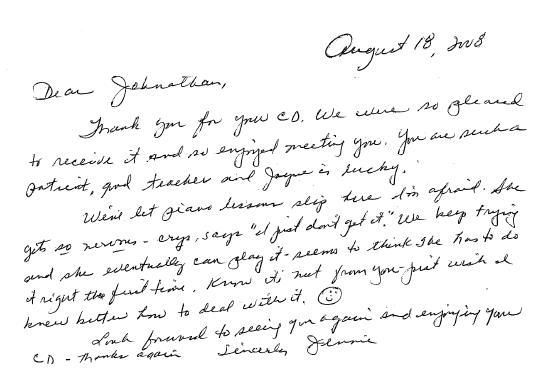 August 18, 2008
Dear Johnathan,
Thank you for your CD. We were so pleased
to receive it and so enjoyed meeting you. You are such a
patient, good teacher and Jayne is lucky.
We've let piano lessons slip here I'm afraid. She
gets so nervous - crys, says "I just don't get it." We keep trying
and she eventually can play it - seems to think she has to do
it right the first time. Know it's not from you - just wish I
knew better how to deal with it. ☺
Look forward to seeing you again and enjoying your
CD - Thanks again Sincerely Jennie